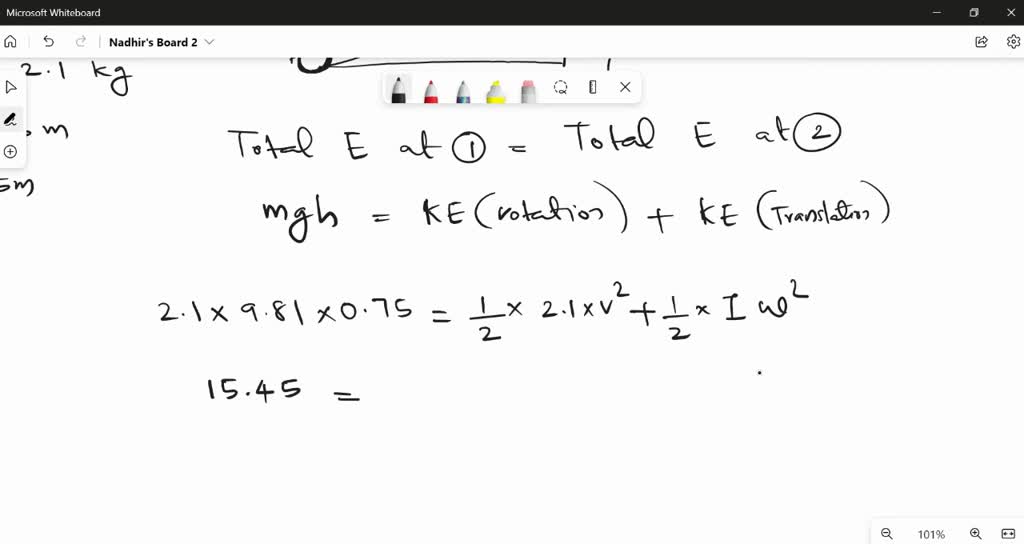 Microsoft Whiteboard
Nadhir's Board 2
2.1 kg
m
5m
Total E at ① = Total E at ②
mgh = KE (rotation) + KE (Translation)
2.1 × 9.81 × 0.75 = 1/2 × 2.1 × v² + 1/2 × I ω²
15.45 =
101%